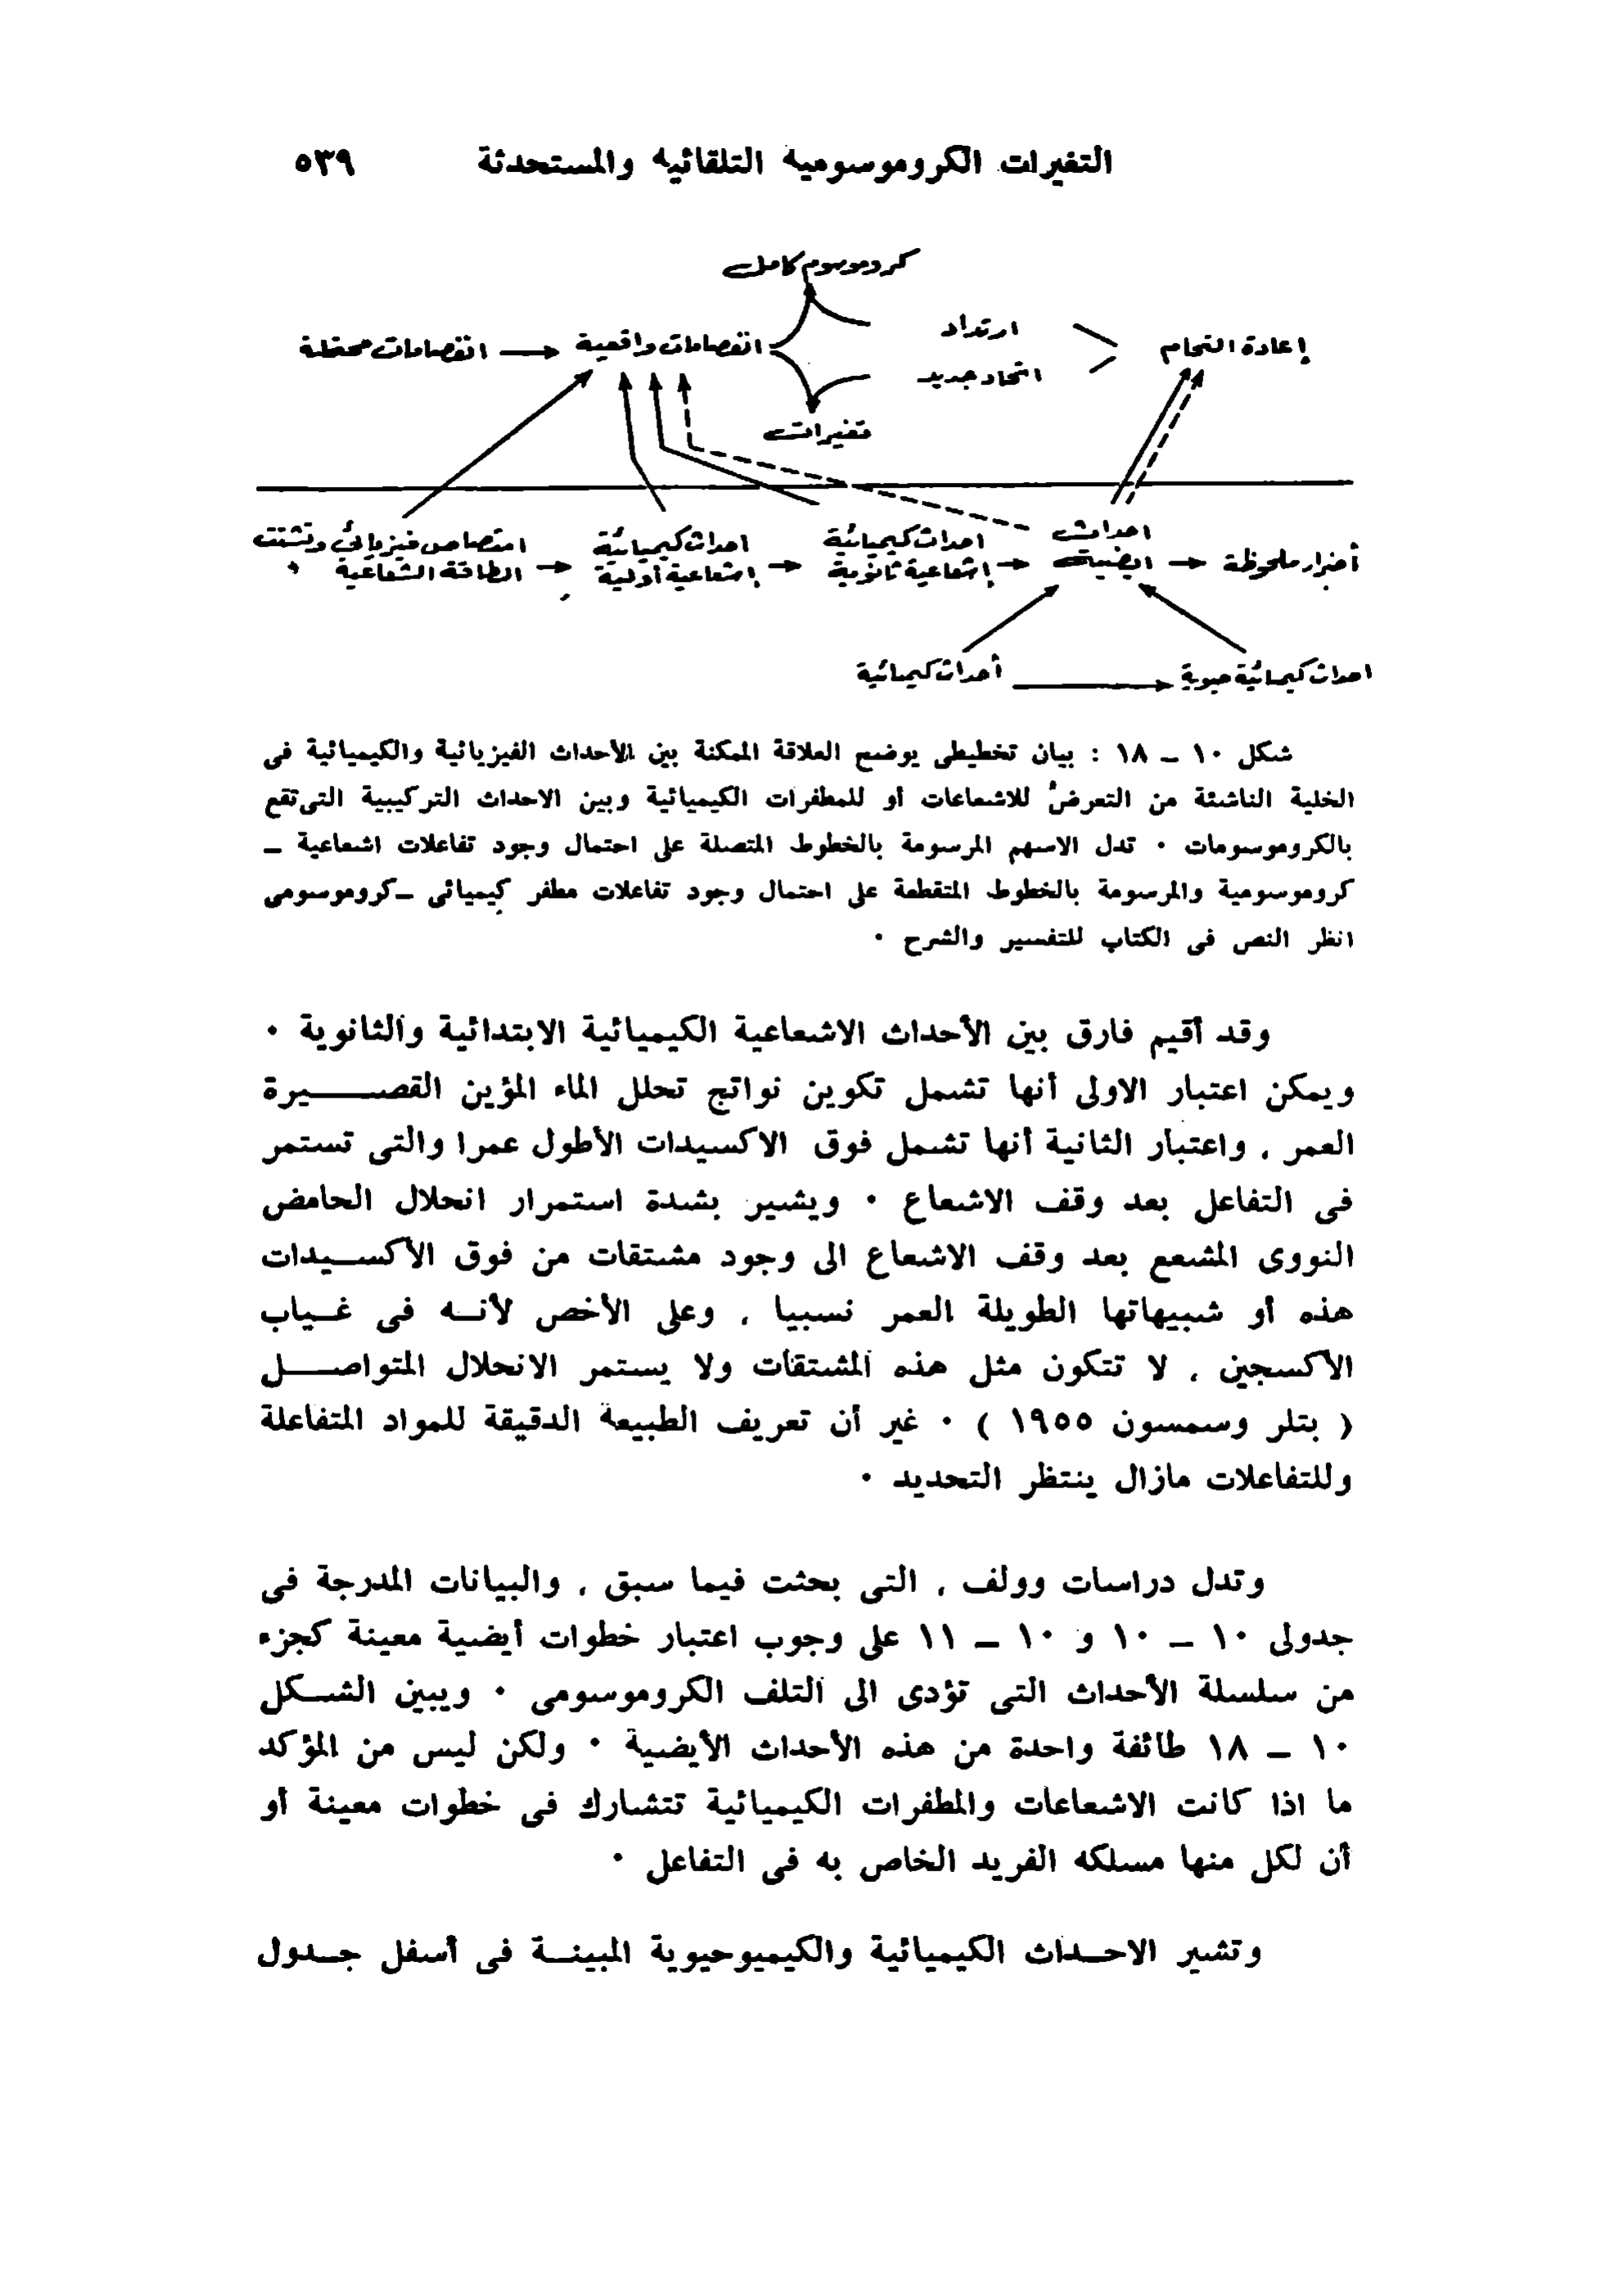 التغيرات الكروموسومية التلقائية والمستحدثة ٥٣٩
كروموسوم كامل
ارتداد
إعادة التحام
انفصامات واقعية
انفصامات محتملة
اتحاد جديد
تغيرات
امتصاص فيزيائي وتشتت
الطاقة الشعاعية
احداث كيميائية
إشعاعية أولية
احداث كيميائية
إشعاعية ثانوية
احداث
ايضية
أضرار ملحوظة
أحداث كيميائية
احداث كيميائية حيوية
شكل ١٠ – ١٨ : بيان تخطيطى يوضح العلاقة الممكنة بين الأحداث الفيزيائية والكيميائية فى
الخلية الناشئة من التعرض للاشعاعات أو للمطفرات الكيميائية وبين الاحداث التركيبية التى تقع
بالكروموسومات ٠ تدل الاسهم المرسومة بالخطوط المتصلة على احتمال وجود تفاعلات اشعاعية –
كروموسومية والمرسومة بالخطوط المتقطعة على احتمال وجود تفاعلات مطفر كيميائى – كروموسومى
انظر النص فى الكتاب للتفسير والشرح ٠
وقد أقيم فارق بين الأحداث الاشعاعية الكيميائية الابتدائية والثانوية ٠
ويمكن اعتبار الاولى أنها تشمل تكوين نواتج تحلل الماء المؤين القصيرة
العمر ، واعتبار الثانية أنها تشمل فوق الاكسيدات الأطول عمرا والتى تستمر
فى التفاعل بعد وقف الاشعاع ٠ ويشير بشدة استمرار انحلال الحامض
النووى المشعع بعد وقف الاشعاع الى وجود مشتقات من فوق الأكسيدات
هذه أو شبيهاتها الطويلة العمر نسبيا ، وعلى الأخص لأنه فى غياب
الأكسجين ، لا تتكون مثل هذه المشتقات ولا يستمر الانحلال المتواصل
( بتلر وسمسون ١٩٥٥ ) ٠ غير أن تعريف الطبيعة الدقيقة للمواد المتفاعلة
وللتفاعلات مازال ينتظر التحديد ٠
وتدل دراسات وولف ، التى بحثت فيما سبق ، والبيانات المدرجة فى
جدولى ١٠ – ١٠ و ١٠ – ١١ على وجوب اعتبار خطوات أيضية معينة كجزء
من سلسلة الأحداث التى تؤدى الى التلف الكروموسومى ٠ ويبين الشكل
١٠ – ١٨ طائفة واحدة من هذه الأحداث الأيضية ٠ ولكن ليس من المؤكد
ما اذا كانت الاشعاعات والمطفرات الكيميائية تتشارك فى خطوات معينة أو
أن لكل منها مسلكه الفريد الخاص به فى التفاعل ٠
وتشير الاحداث الكيميائية والكيميوحيوية المبينة فى أسفل جدول